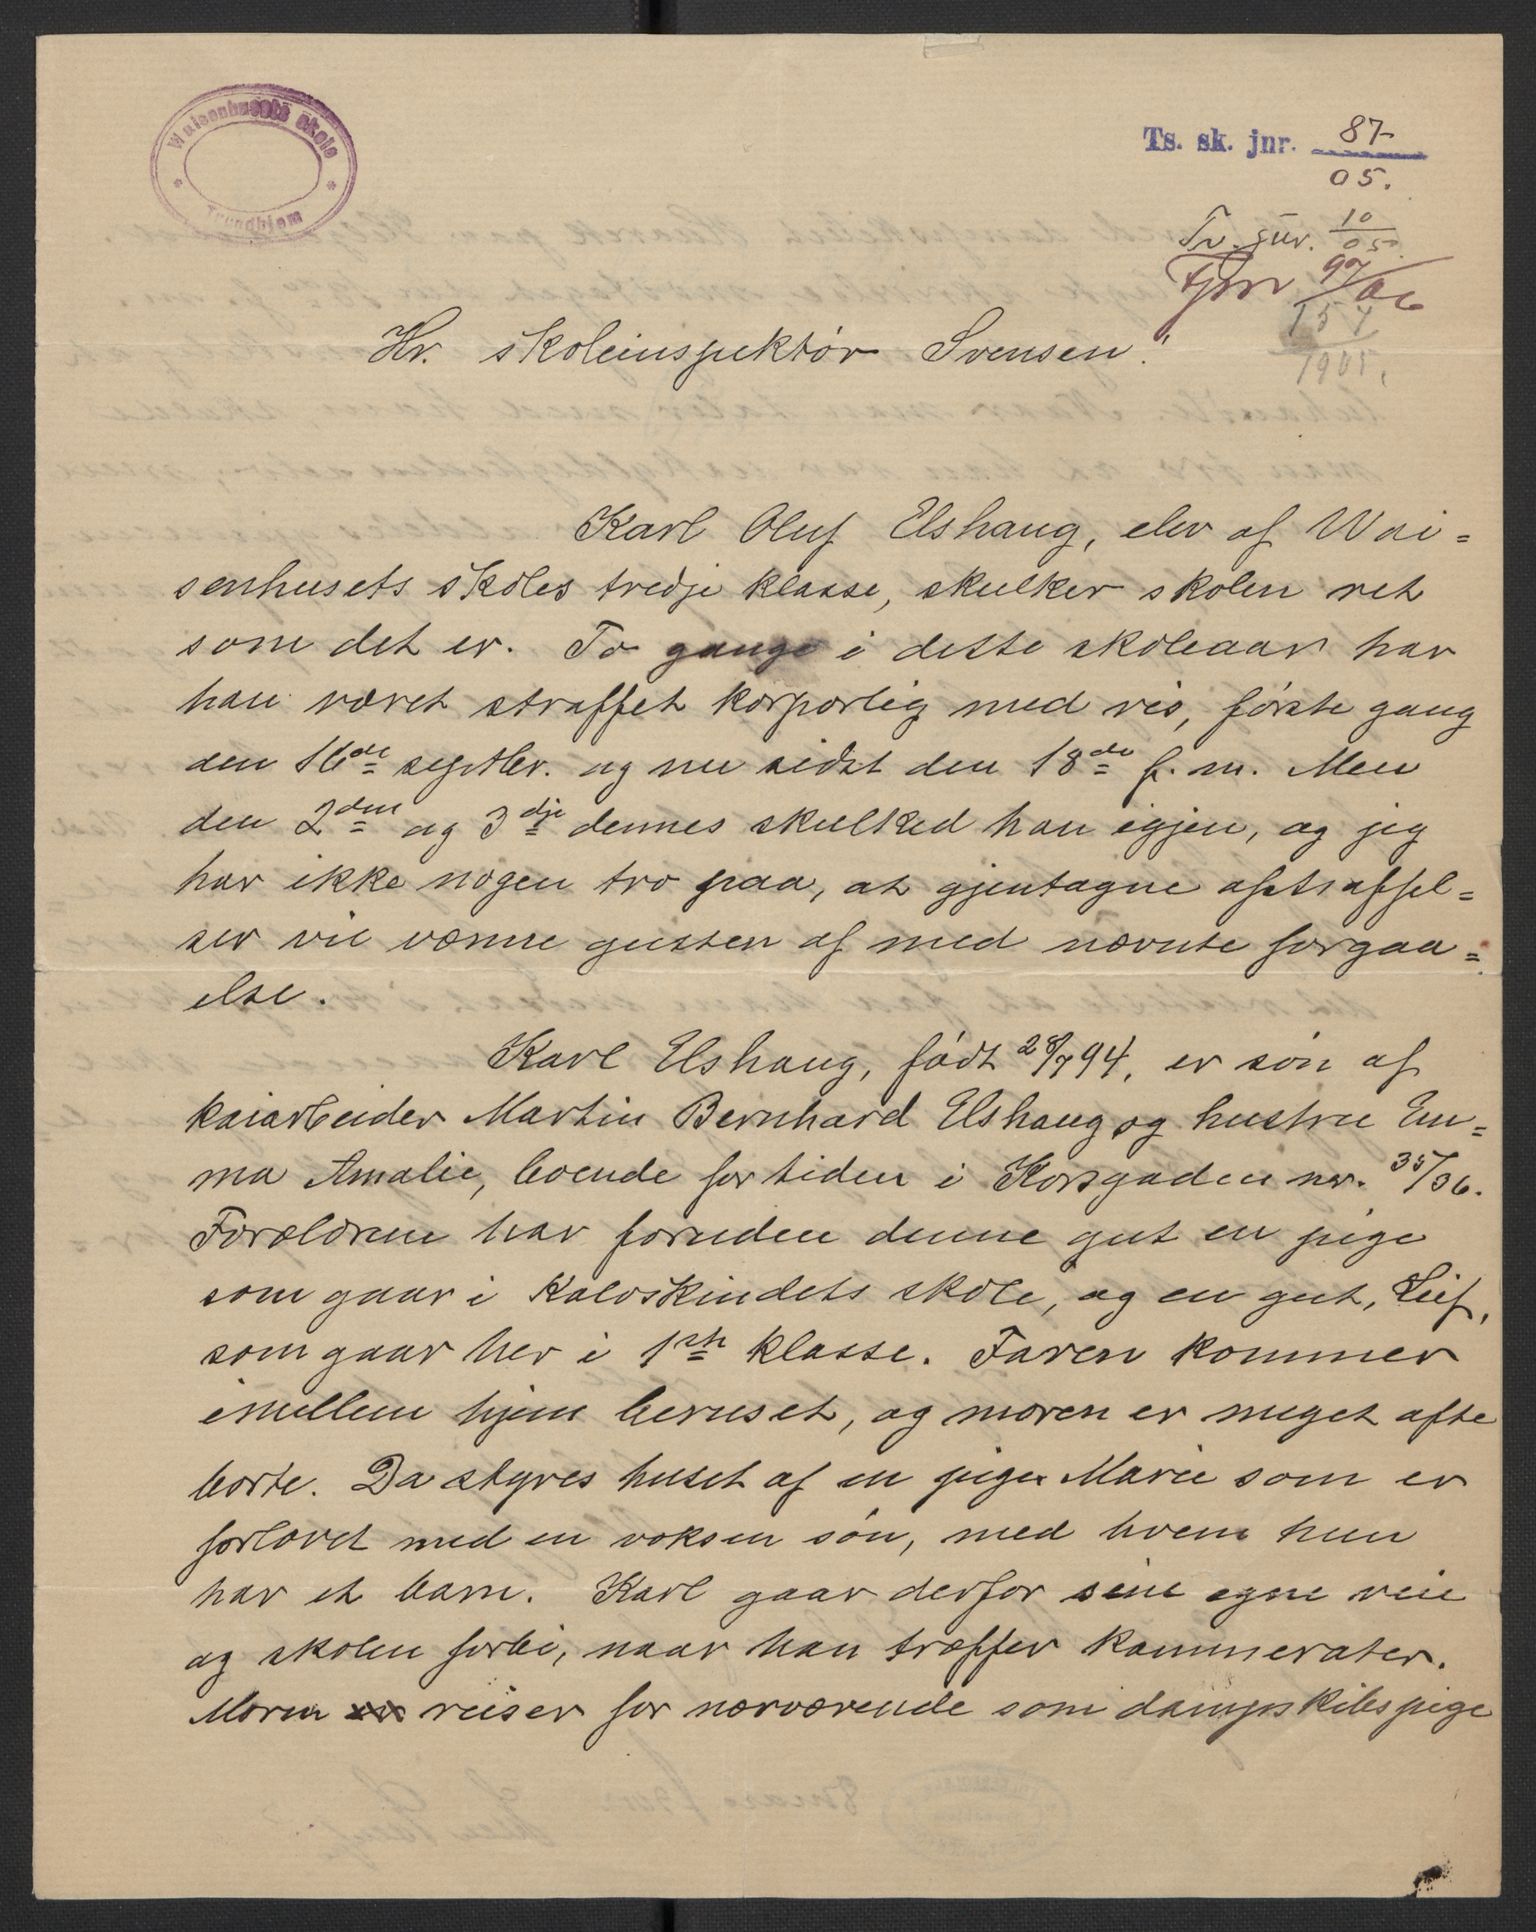 Waisenhusets skole
Trondhjem
Ts. sk. jnr. 87
05.
Tv. jur. 10
05
97/06
157
1905.
Hr. skoleinspektør Svensen!
Karl Oluf Elshaug, elev af Wai=
senhusets skoles tredje klasse, skulker skolen ret
som det er. To gange i dette skoleaar har
han været straffet korporlig med ris, første gang
den 16de septbr. og nu sidst den 18de f. m. Men
den 2den og 3dje dennes skulked han igjen, og jeg
har ikke nogen tro paa, at gjentagne afstraffel=
ser vil vænne gutten af med nævnte forgaa=
else.
Karl Elshaug, født 28/7 94, er søn af
kaiarbeider Martin Bernhard Elshaug og hustru Em=
ma Amalie, boende for tiden i Korsgaden nr. 35/36.
Forældrene har foruden denne gut en pige
som gaar i Kalvskindets skole, og en gut, Leif,
som gaar her i 1ste klasse. Faren kommer
imellem hjem beruset, og moren er meget ofte
borte. Da styres huset af en pige Marie som er
forlovet med en voksen søn, med hvem hun
har et barn. Karl gaar derfor sine egne veie
og skolen forbi, naar han træffer kammerater.
Moren reiser for nærværende som dampskibspige